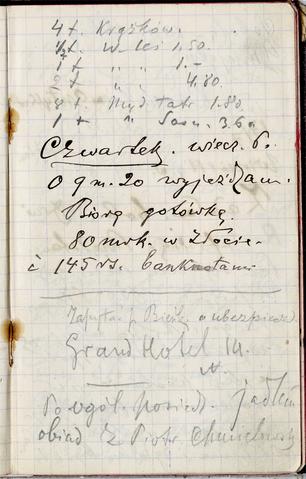 4 t. Krążków.
1/2 t. W. Leś 1.50.
1 t " " 1.—
2 " " 4.80
8 t Myd tatr 1.80
1 t " Sosn. 3.60
Czwartek. wiecz. 6.
O 9 m. 20 wyjeżdżam.
Biorę gotówkę.
80 mrk. w złocie.
i 145 rs. banknotami
o ubezpiecz
Grand Hotel 14.
N.
Po ogól. posiedz. jadłem
obiad z Piotr Chmielowsk